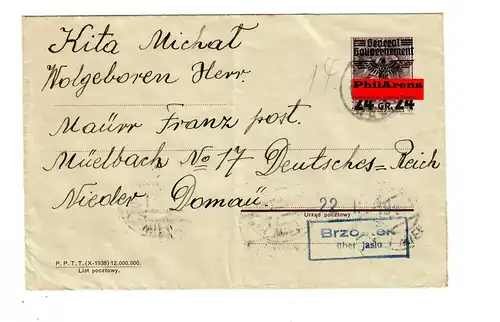 Kita Michał
Wolgeboren Herr.
Maürr Franz post.
Müelbach No 17 Deutsches=Reich
Nieder Domaü.
General
Gouvernement
PhilArena
24 GR. 24
14
22
Urząd pocztowy
über Jaslo
P. P. T. T. (X-1938) 12.000.000.
List pocztowy.